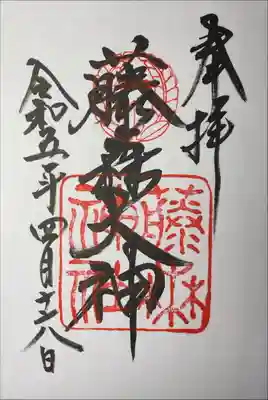 奉拝
藤森大神
令和五年四月十六日
藤森
神社